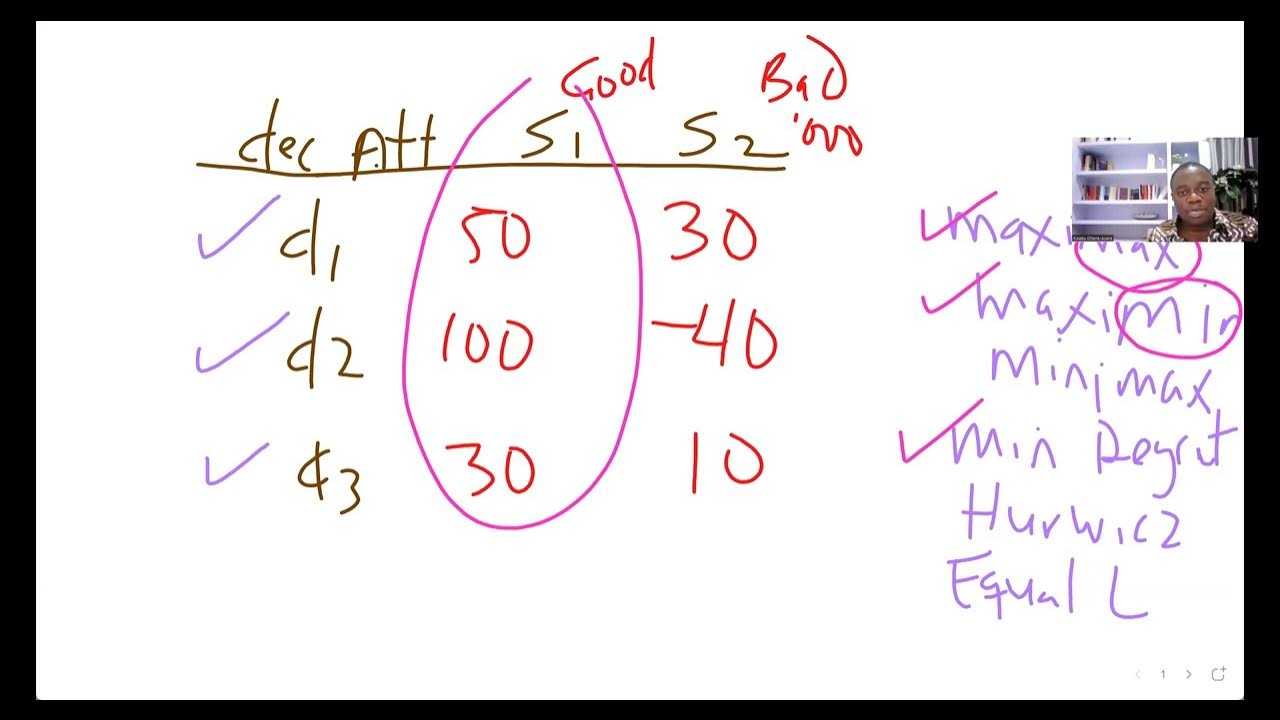 Good Bad
dec Att S1 S2 '000
d1 50 30
d2 100 -40
d3 30 10
maximax
maximin
minimax
min Regret
Hurwicz
Equal L
1